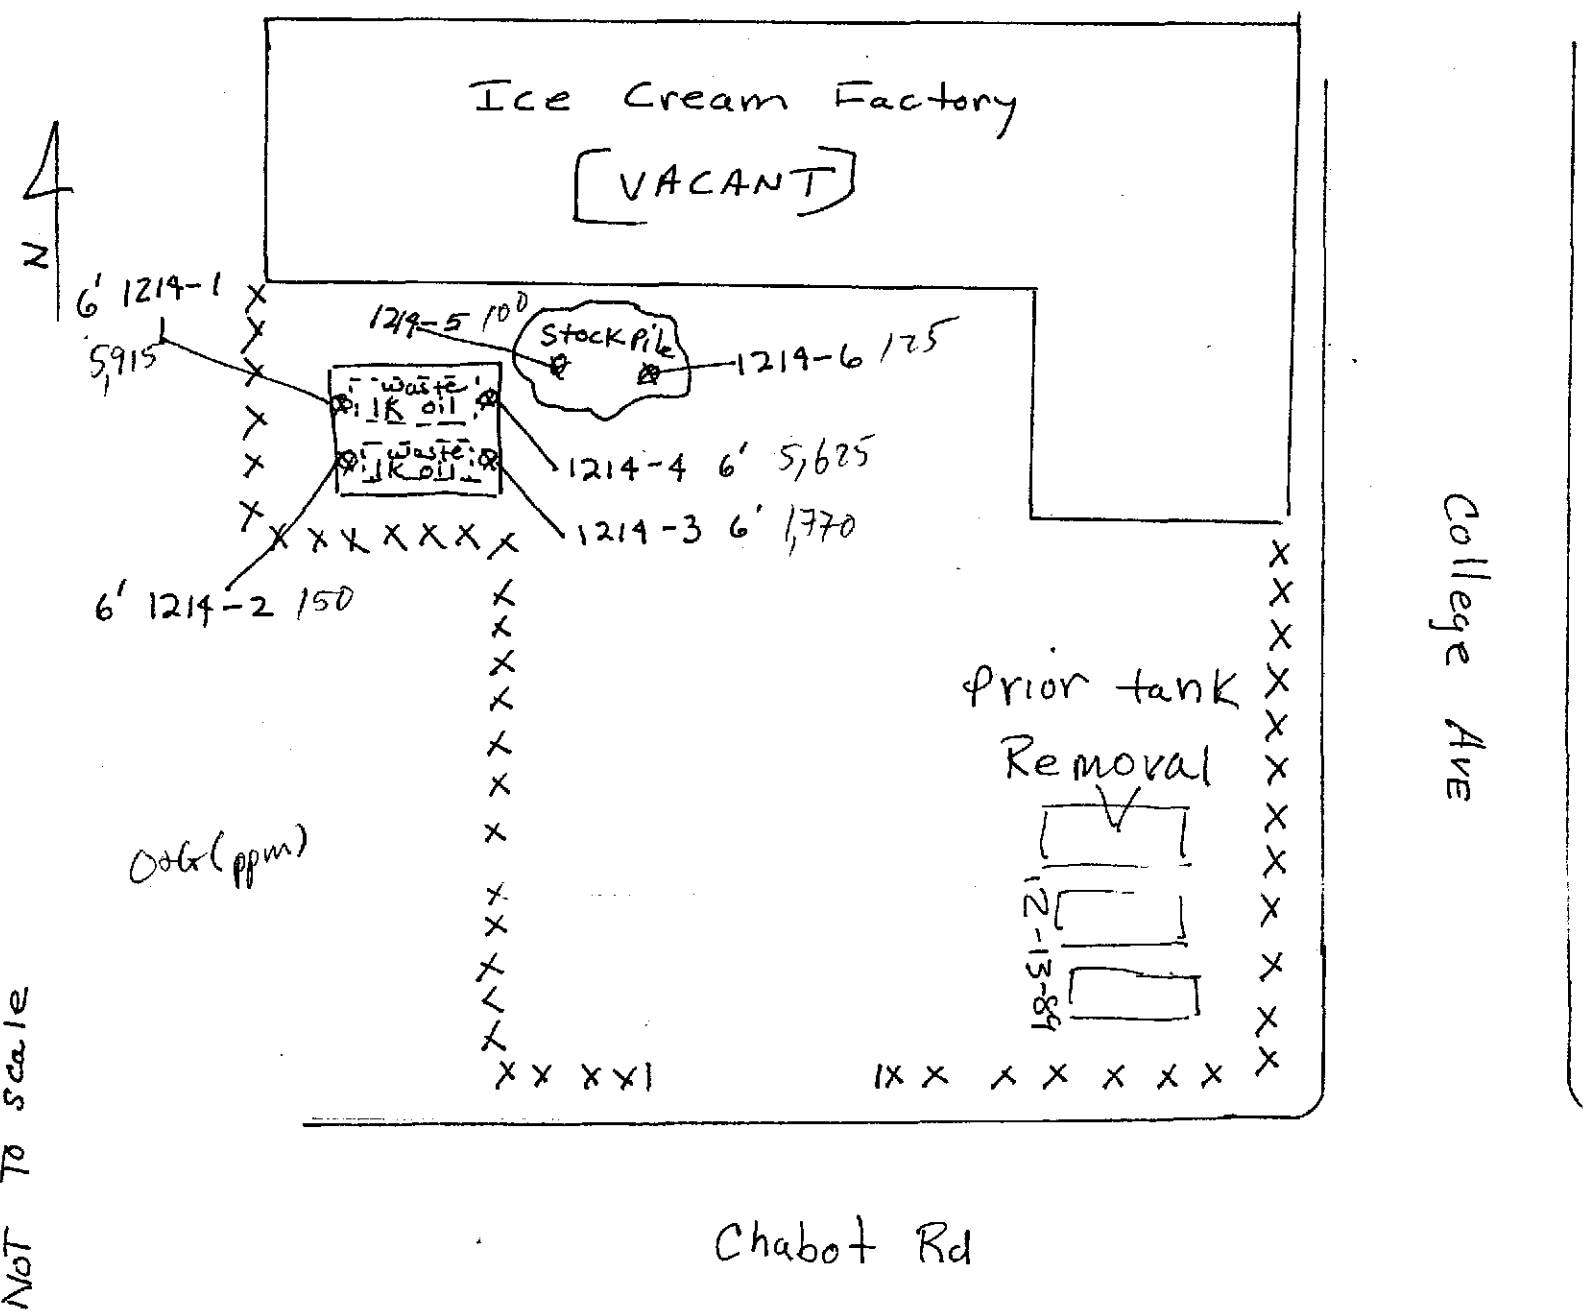 Ice Cream Factory
[VACANT]
N
6' 1214-1
5,915
1214-5 100
Stock Pile
1214-6 125
waste
1K oil
waste
1K oil
1214-4 6' 5,625
1214-3 6' 1,770
6' 1214-2 150
College AVE
Prior tank
Removal
12-13-89
O+G (ppm)
NOT TO scale
Chabot Rd